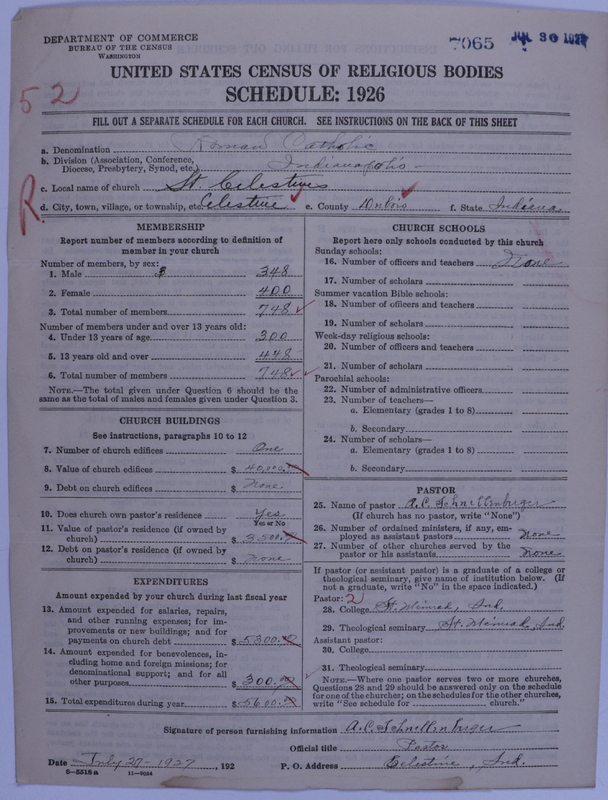 DEPARTMENT OF COMMERCE
BUREAU OF THE CENSUS
WASHINGTON
7065
JUL 30 1927
52
UNITED STATES CENSUS OF RELIGIOUS BODIES
SCHEDULE: 1926
FILL OUT A SEPARATE SCHEDULE FOR EACH CHURCH. SEE INSTRUCTIONS ON THE BACK OF THIS SHEET
R.
a. Denomination Roman Catholic
b. Division (Association, Conference, Diocese, Presbytery, Synod, etc.) Indianapolis
c. Local name of church St. Celestines
d. City, town, village, or township, etc. Celestine e. County Dubois f. State Indiana
MEMBERSHIP
Report number of members according to definition of
member in your church
Number of members, by sex:
1. Male 348
2. Female 400
3. Total number of members 748
Number of members under and over 13 years old:
4. Under 13 years of age 300
5. 13 years old and over 448
6. Total number of members 748
NOTE.—The total given under Question 6 should be
same as the total of males and females given under Question 3.
CHURCH BUILDINGS
See instructions, paragraphs 10 to 12
7. Number of church edifices One
8. Value of church edifices $ 40,000.
9. Debt on church edifices $ None.
10. Does church own pastor's residence Yes
Yes or No
11. Value of pastor's residence (if owned by
church) $ 3,500.
12. Debt on pastor's residence (if owned by
church) $ None
EXPENDITURES
Amount expended by your church during last fiscal year
13. Amount expended for salaries, repairs,
and other running expenses; for im-
provements or new buildings; and for
payments on church debt $ 5300.00
14. Amount expended for benevolences, in-
cluding home and foreign missions; for
denominational support; and for all
other purposes $ 300.00
15. Total expenditures during year $ 5600.00
CHURCH SCHOOLS
Report here only schools conducted by this church
Sunday schools:
16. Number of officers and teachers None
17. Number of scholars
Summer vacation Bible schools:
18. Number of officers and teachers
19. Number of scholars
Week-day religious schools:
20. Number of officers and teachers
21. Number of scholars
Parochial schools:
22. Number of administrative officers
23. Number of teachers—
a. Elementary (grades 1 to 8)
b. Secondary
24. Number of scholars—
a. Elementary (grades 1 to 8)
b. Secondary
PASTOR
25. Name of pastor A.C. Schnellenberger
(If church has no pastor, write "None")
26. Number of ordained ministers, if any, em-
ployed as assistant pastors None
27. Number of other churches served by the
pastor or his assistants None
If pastor (or assistant pastor) is a graduate of a college or
theological seminary, give name of institution below. (If
not a graduate, write "No" in the space indicated.)
Pastor: 2
28. College St. Meinrad, Ind.
29. Theological seminary St. Meinrad, Ind.
Assistant pastor:
30. College
31. Theological seminary
NOTE.—Where one pastor serves two or more churches,
Questions 28 and 29 should be answered only on the schedule
for one of the churches; on the schedules for the other churches,
write "See schedule for church."
Signature of person furnishing information A.C. Schnellenberger
Official title Pastor
Date July 27-1927, 192 P. O. Address Celestine, Ind.
8-5518a 11-9034